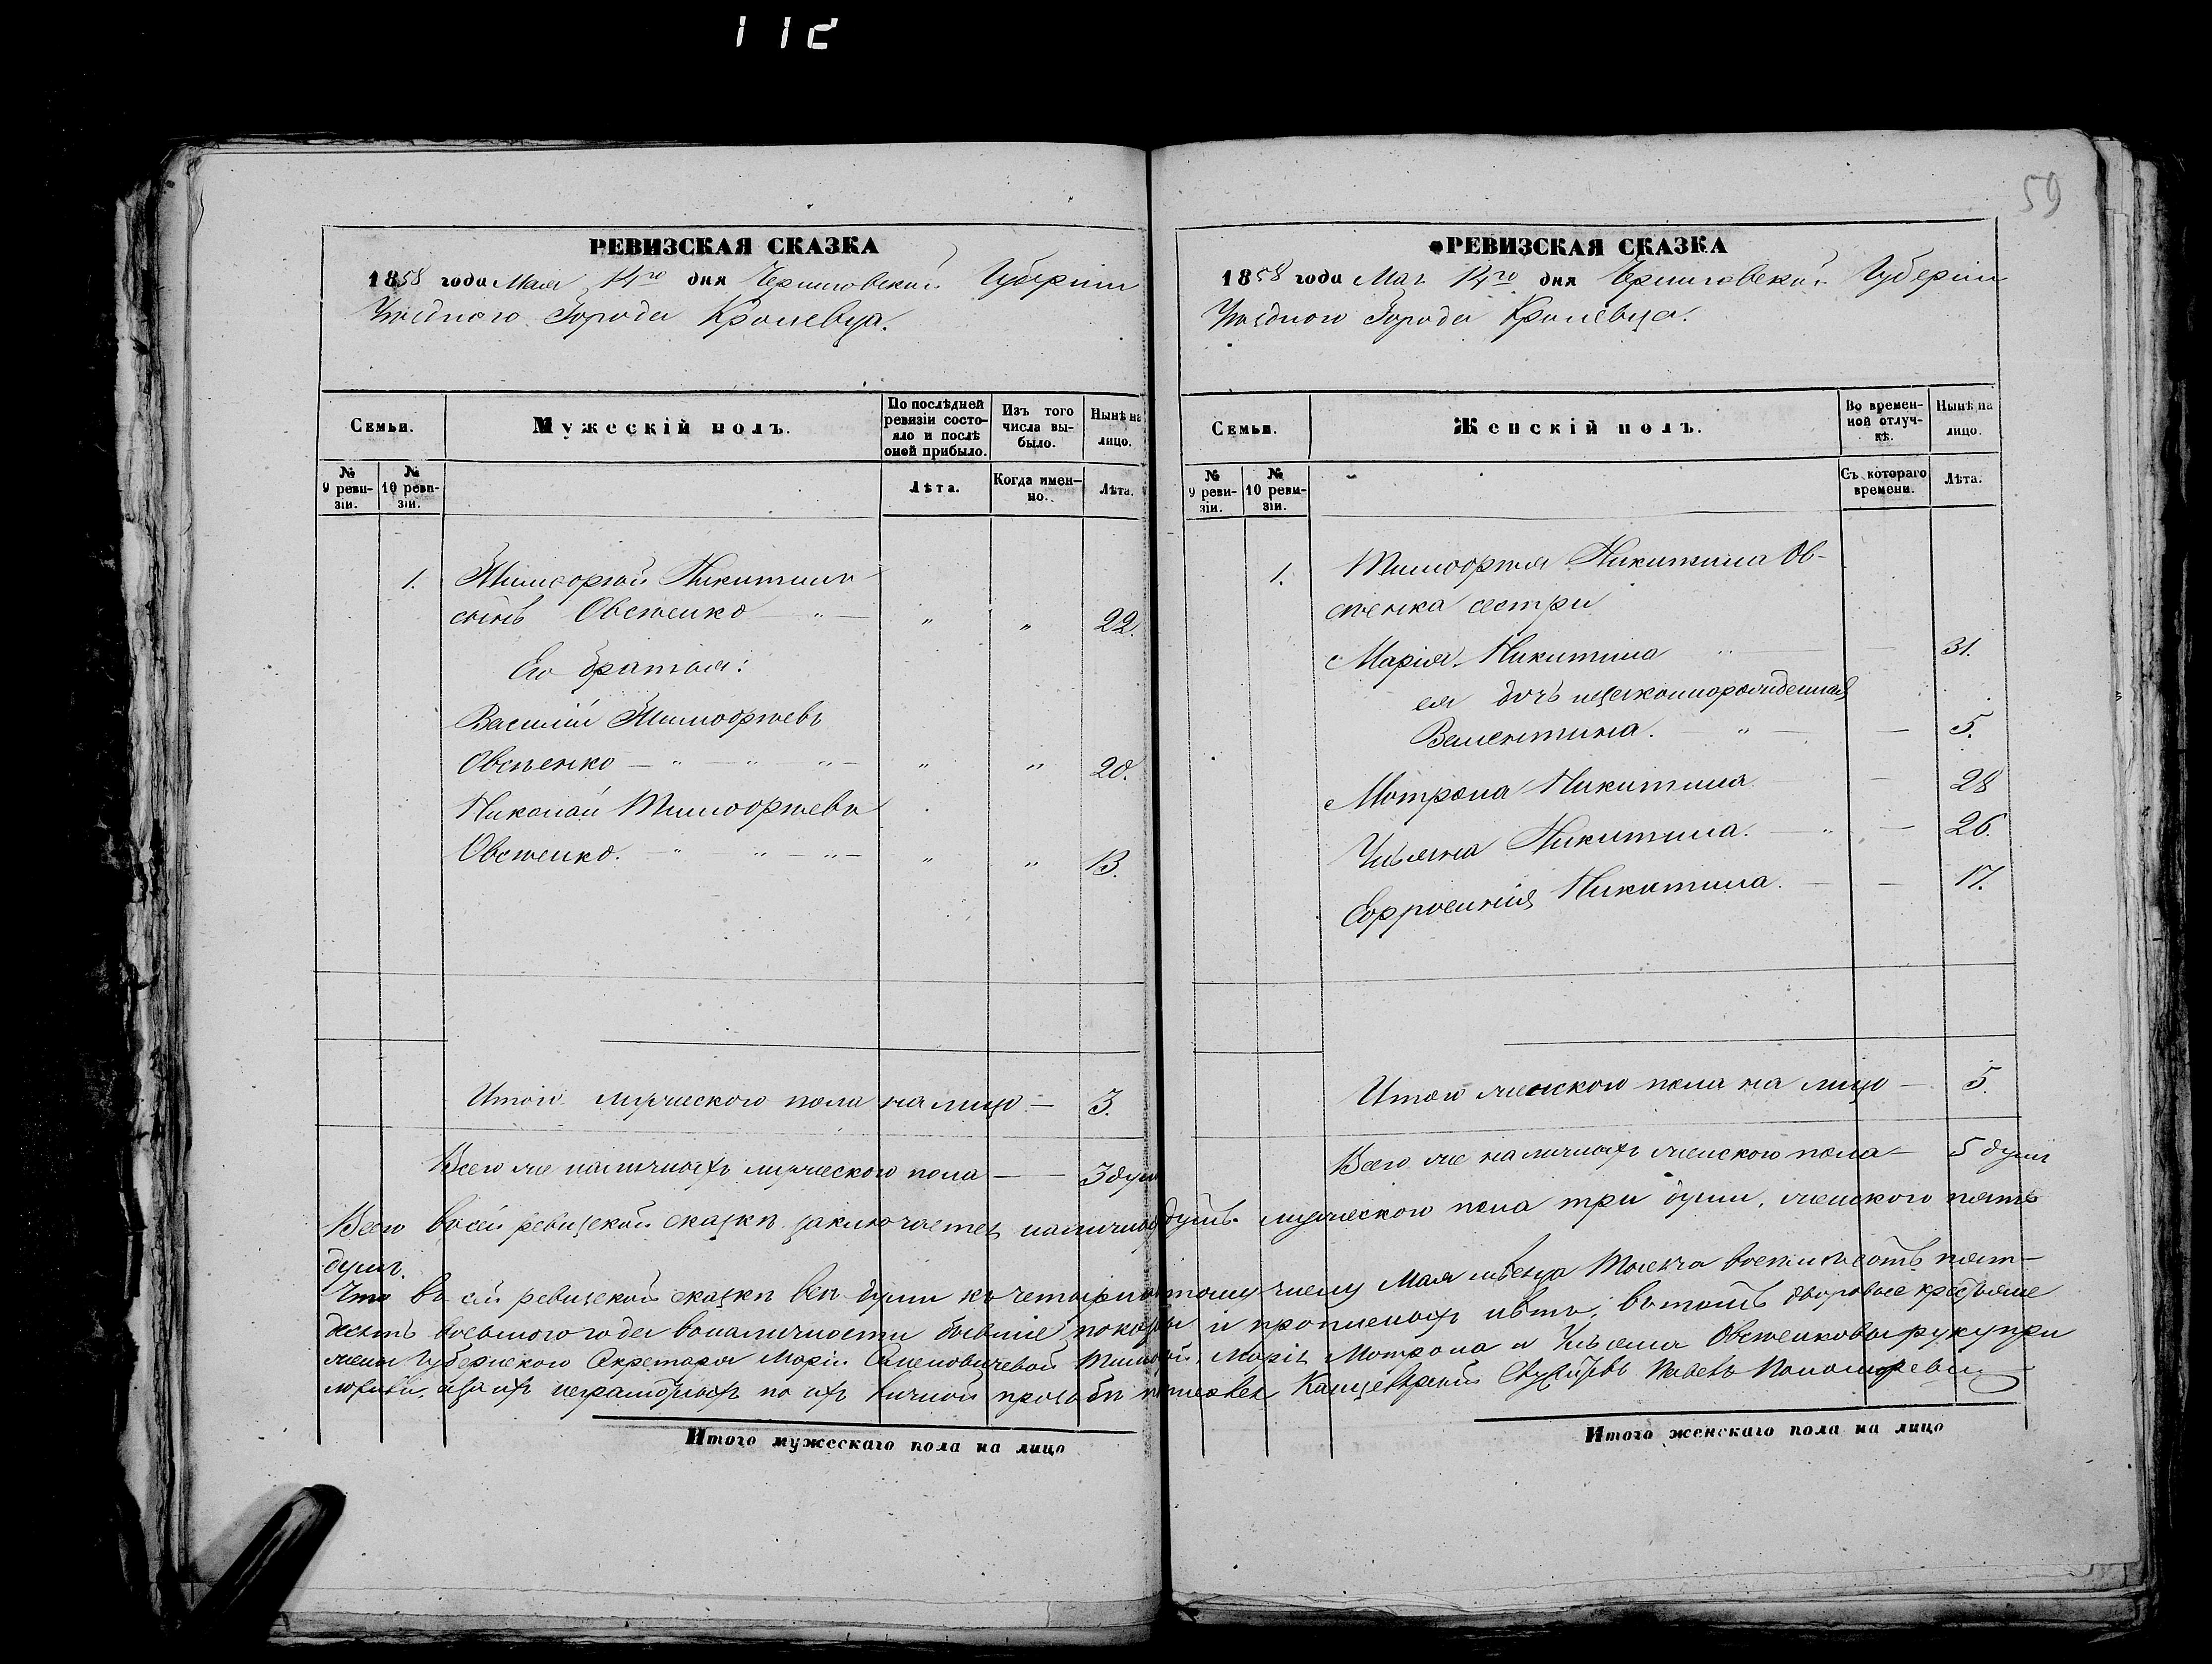 112
59
РЕВИЗСКАЯ СКАЗКА
1858 года Мая 14го дня Черниговской Губерніи
Уѣзднаго Города Кролевца.
Семьи.
Мужескій полъ.
По послѣдней ревизіи состояло и послѣ оной прибыло.
Изъ того числа выбыло.
Нынѣ на лицо.
№ 9 ревизіи.
№ 10 ревизіи.
Лѣта.
Когда именно.
Лѣта.
1. Тимофѣй Никитинъ
сынъ Овсѣенко — „ — „ „ 22.
Его братья:
Василій Тимофѣевъ
Овсѣенко — „ — „ „ — „ „ 20.
Николай Тимофѣевъ
Овсѣенко. — „ „ — „ — „ „ 13.
Итого мужескаго пола на лицо — 3.
Всего же наличныхъ мужескаго пола — — 3 душ
РЕВИЗСКАЯ СКАЗКА
1858 года Мая 14го дня Черниговской Губерніи
Уѣзднаго Города Кролевца.
Семьи.
Женскій полъ.
Во временной отлучкѣ.
Нынѣ на лицо.
№ 9 ревизіи.
№ 10 ревизіи.
Съ котораго времени.
Лѣта.
1. Тимофѣя Никитина Ов-
сѣенка сестры
Марія Никитина „ — — 31.
ея дочь незаконнорожденная
Валентина. — „ — — 5.
Мотрона Никитина — 28
Ульяна Никитина. — „ — 26.
Ефросинія Никитина. — — 17.
Итого женскаго пола на лицо — 5.
Всего же наличныхъ женскаго пола — 5 душъ
Всего въ сей ревизской сказкѣ заключается наличныхъ душъ мужескаго пола три души, женскаго пять
душъ.
Что въ сей ревизской сказкѣ всѣ души къ четырнадцатому числу Мая мѣсяца Тысяча восемьсотъ пять-
десятъ восьмого года въ наличности бывшіе показаны и прописныхъ нѣтъ, въ томъ дворовые крестьяне
жены Губернскаго Секретаря Маріи Марія Мотрона и Ульяна Овсѣенковы руку при
ложили, а за ихъ неграмотныхъ по ихъ личной прозьбѣ Канцелярскій Служитель Павелъ Пономаревъ
Итого мужескаго пола на лицо
Итого женскаго пола на лицо